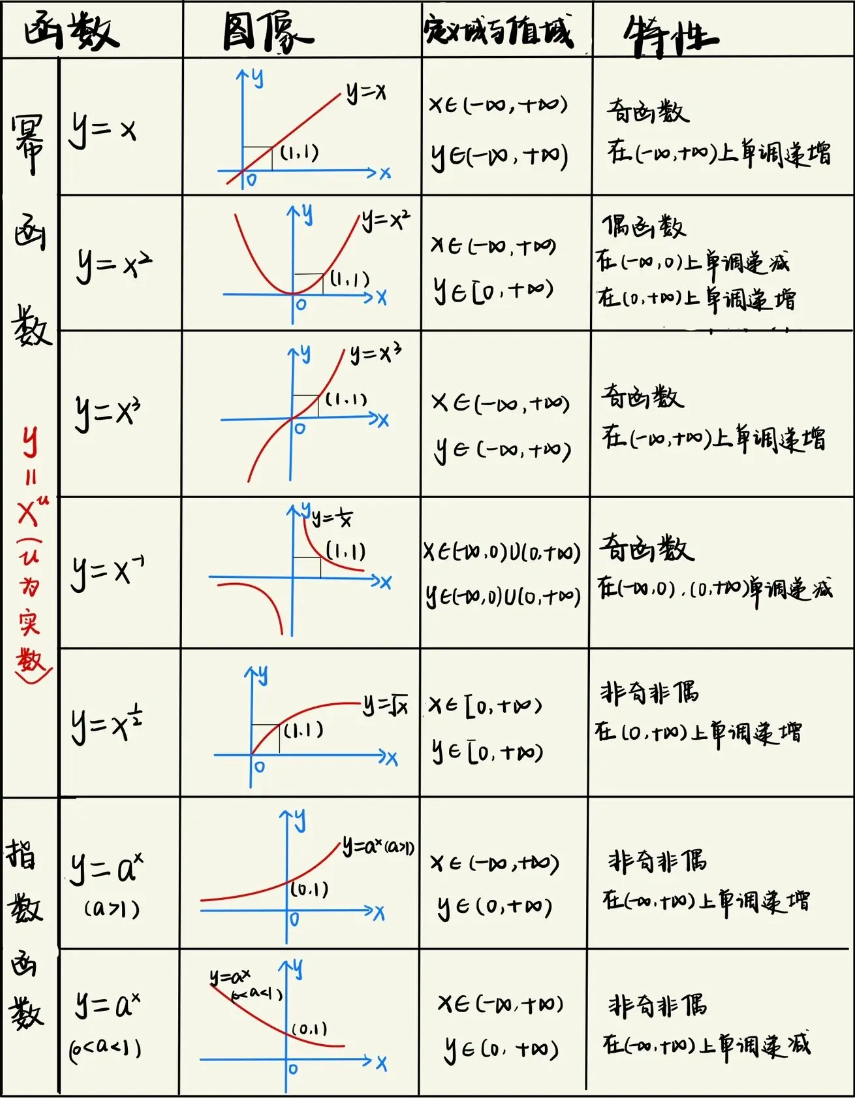 函数 图像 定义域与值域 特性
幂函数 y=x^u(u为实数)
y=x
y
y=x
(1,1)
0
x
x∈(-∞,+∞)
y∈(-∞,+∞)
奇函数
在(-∞,+∞)上单调递增
y=x²
y
y=x²
(1,1)
0
x
x∈(-∞,+∞)
y∈[0,+∞)
偶函数
在(-∞,0)上单调递减
在(0,+∞)上单调递增
y=x³
y
y=x³
(1,1)
0
x
x∈(-∞,+∞)
y∈(-∞,+∞)
奇函数
在(-∞,+∞)上单调递增
y=x⁻¹
y
y=1/x
(1,1)
x
x∈(-∞,0)∪(0,+∞)
y∈(-∞,0)∪(0,+∞)
奇函数
在(-∞,0).(0,+∞)单调递减
y=x^½
y
y=√x
(1,1)
0
x
x∈[0,+∞)
y∈[0,+∞)
非奇非偶
在(0,+∞)上单调递增
指数函数
y=aˣ
(a>1)
y
y=aˣ(a>1)
(0,1)
0
x
x∈(-∞,+∞)
y∈(0,+∞)
非奇非偶
在(-∞,+∞)上单调递增
y=aˣ
(0<a<1)
y
y=aˣ
(0<a<1)
(0,1)
0
x
x∈(-∞,+∞)
y∈(0,+∞)
非奇非偶
在(-∞,+∞)上单调递减